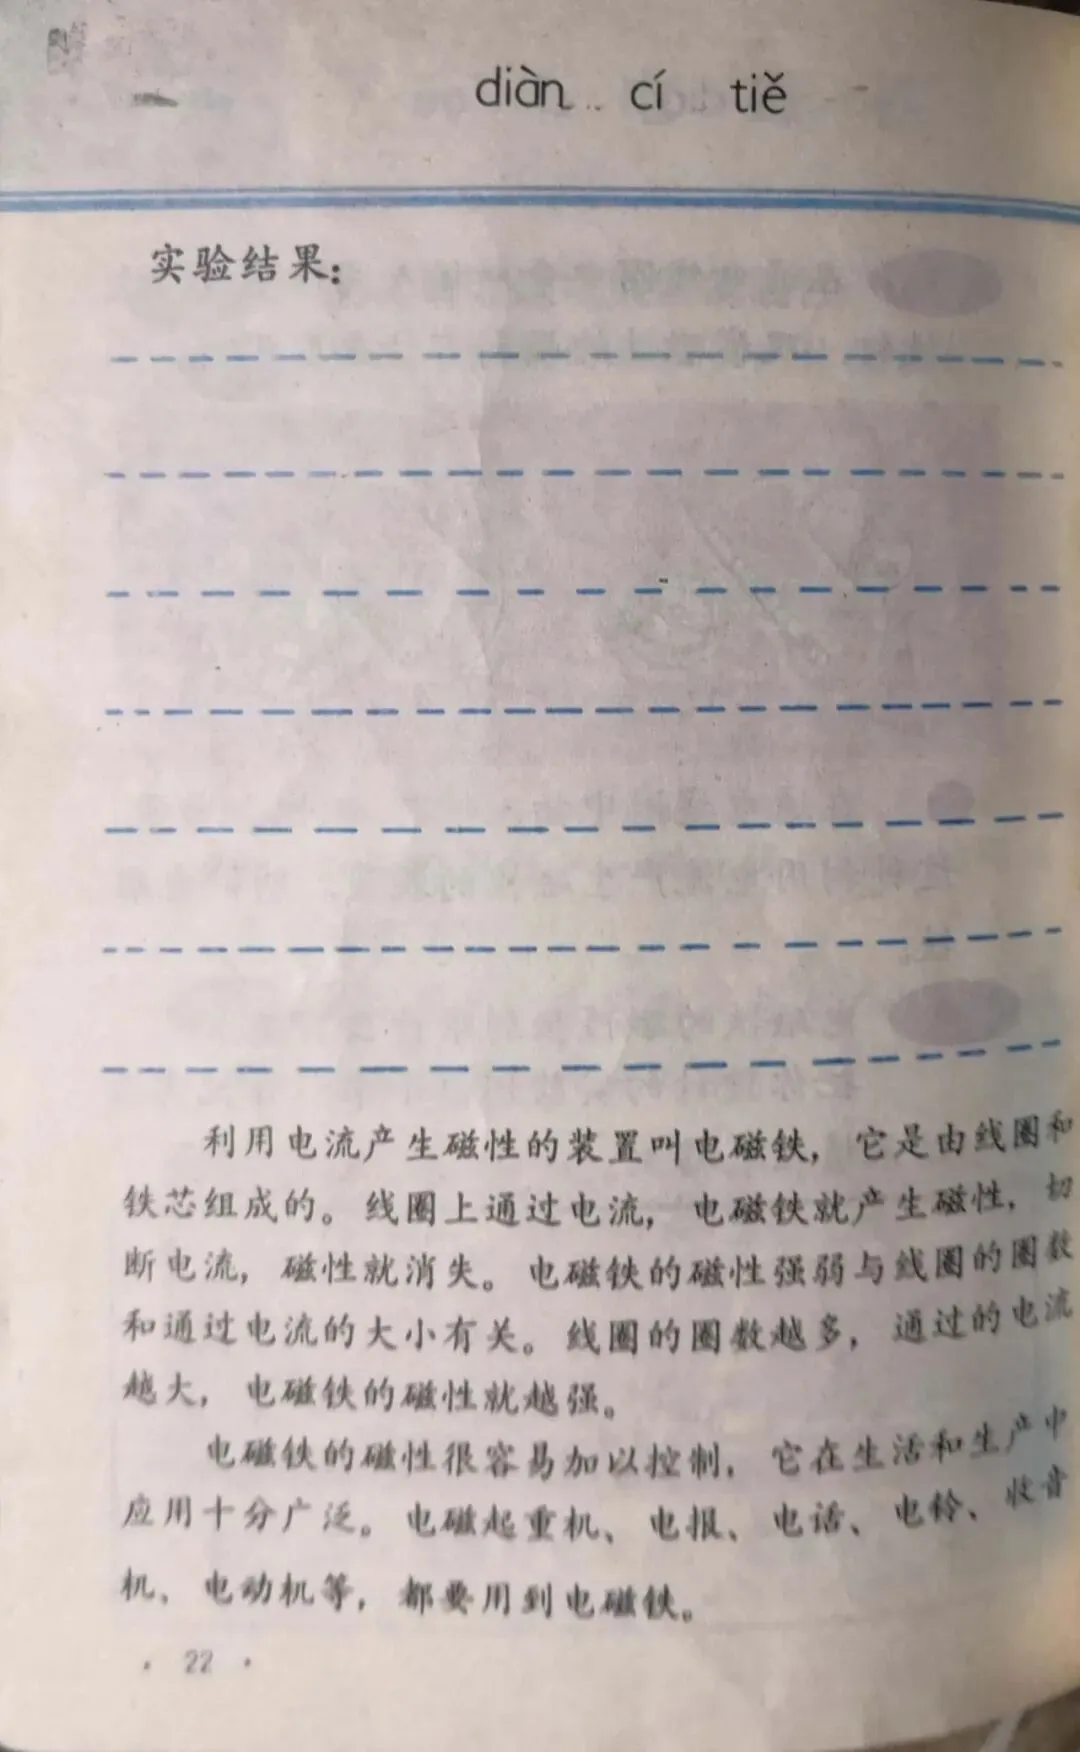 diàn cí tiě
实验结果:
利用电流产生磁性的装置叫电磁铁，它是由线圈和
铁芯组成的。线圈上通过电流，电磁铁就产生磁性，切
断电流，磁性就消失。电磁铁的磁性强弱与线圈的圈数
和通过电流的大小有关。线圈的圈数越多，通过的电流
越大，电磁铁的磁性就越强。
电磁铁的磁性很容易加以控制，它在生活和生产中
应用十分广泛。电磁起重机、电报、电话、电铃、收音
机、电动机等，都要用到电磁铁。
· 22 ·